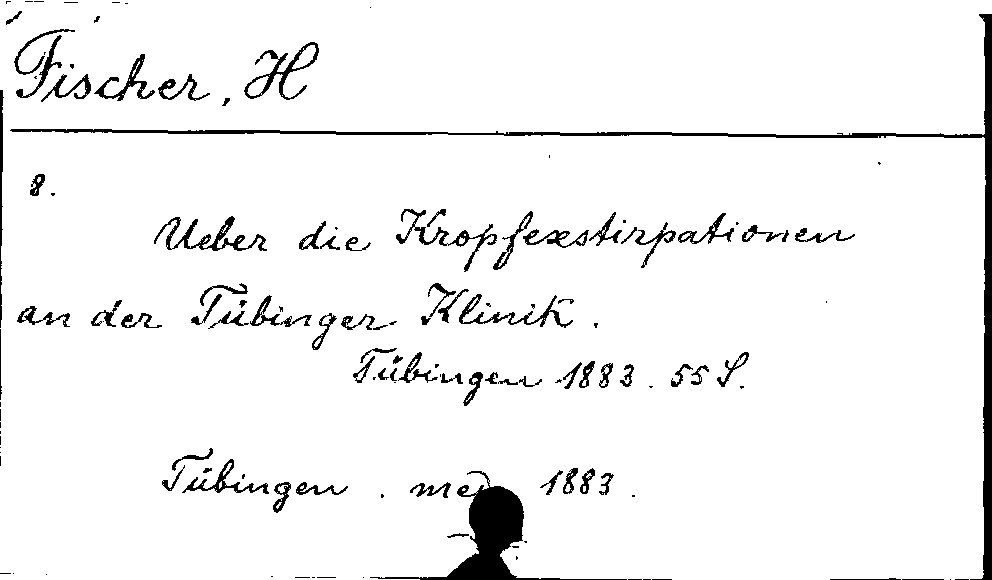 Fischer, H
8.
Ueber die Kropfexstirpationen
an der Tübinger Klinik.
Tübingen 1883. 55 S.
Tübingen. med 1883.